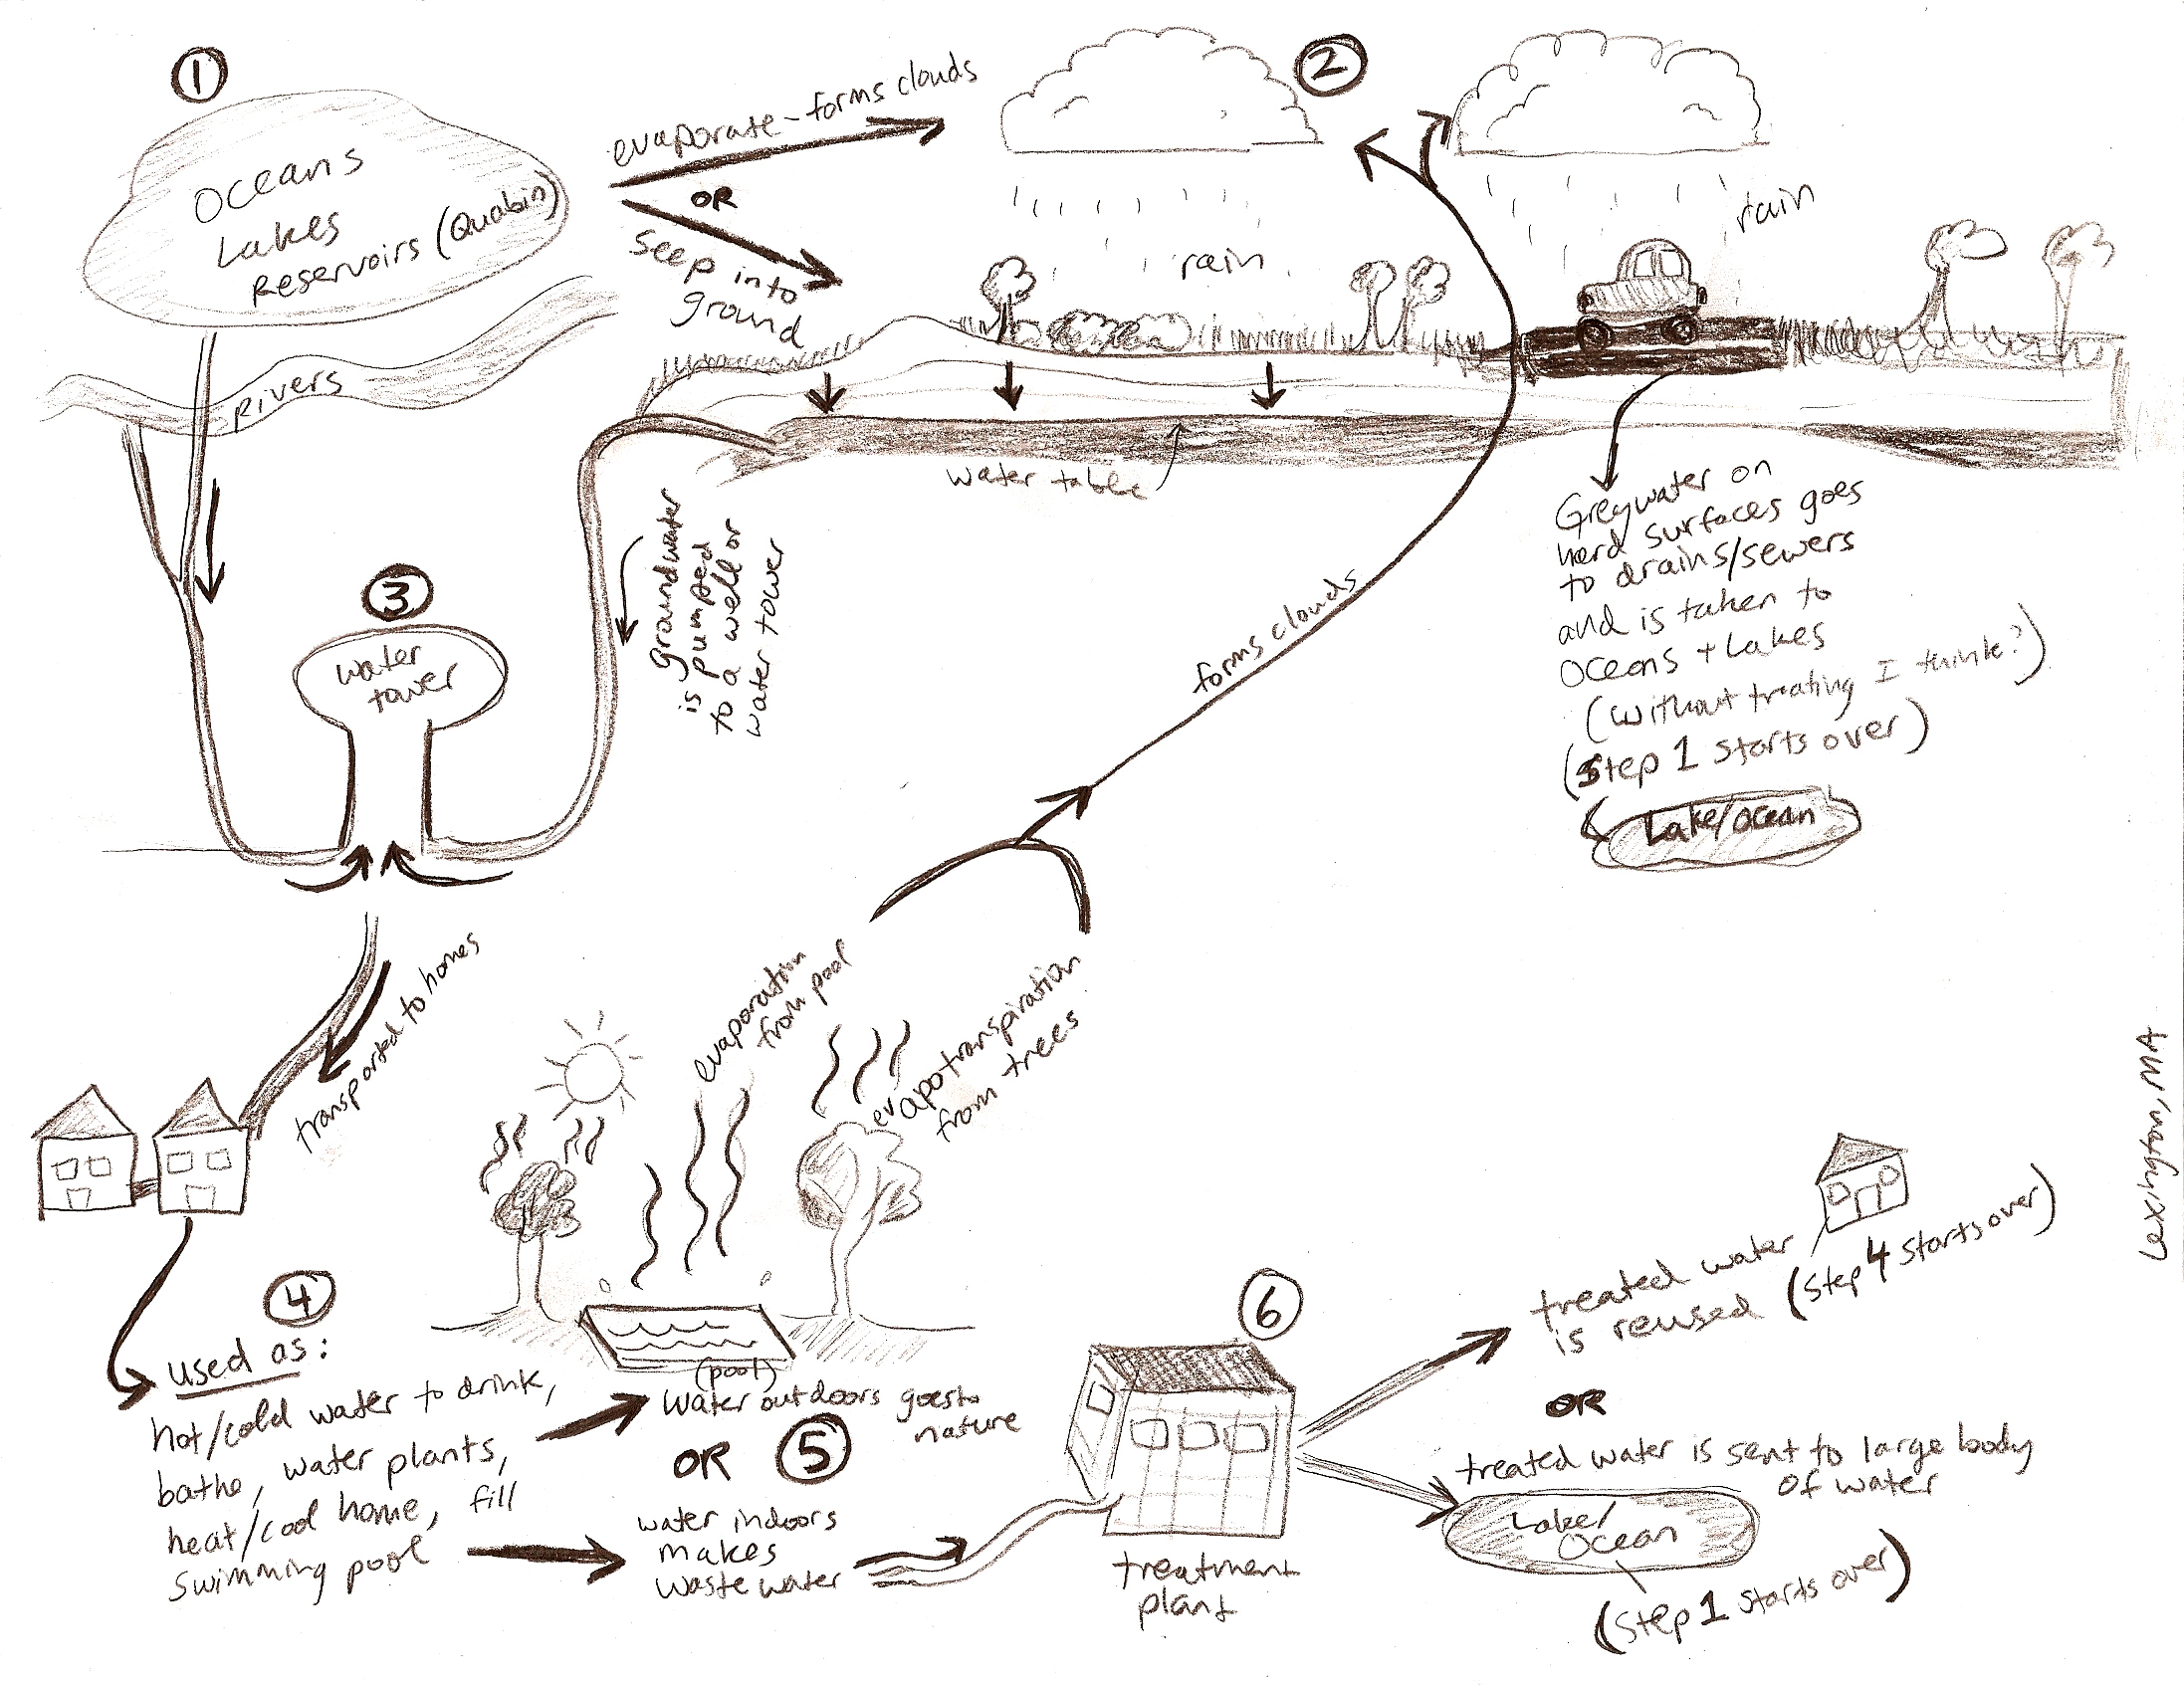 1
Oceans
Lakes
Reservoirs (Quabin)
evaporate - forms clouds
OR
Seep into
ground
2
rain
rain
Rivers
water table
groundwater
is pumped
to a well or
water tower
3
water
tower
Greywater on
hard surfaces goes
to drains/sewers
and is taken to
oceans + Lakes
(without treating I think?)
(Step 1 starts over)
Lake/ocean
forms clouds
transported to homes
evaporation
from pool
evapotranspiration
from trees
4
used as:
hot/cold water to drink,
bathe, water plants,
heat/cool home, fill
swimming pool
(pool)
Water outdoors goes to
nature
OR 5
water indoors
makes
waste water
6
treatment
plant
treated water
is reused (Step 4 starts over)
OR
treated water is sent to large body
of water
Lake/
Ocean
(Step 1 starts over)
Lexington, MA